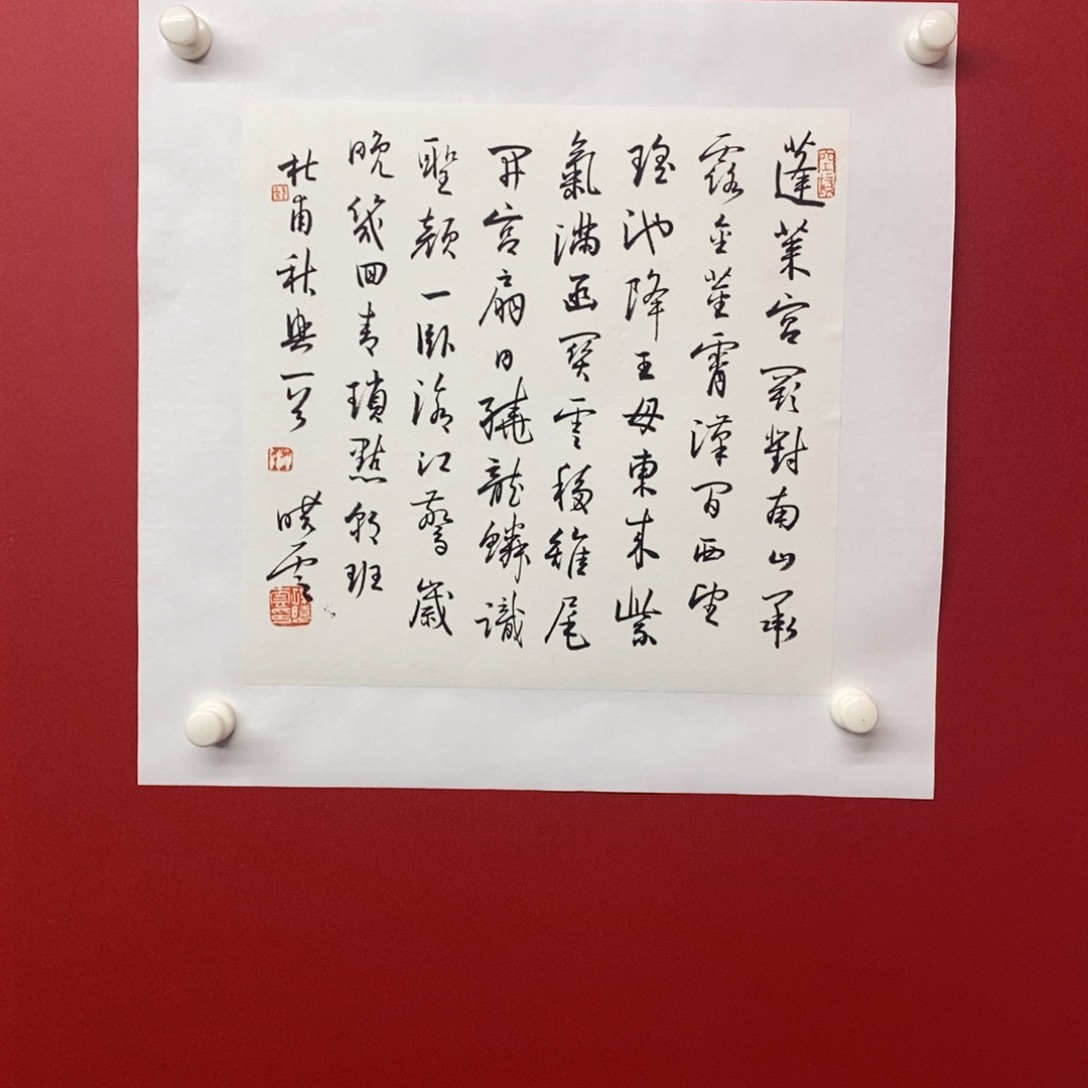 蓬萊宮闕對南山承
露金莖霄漢間西望
瑤池降王母東来紫
氣滿函關雲移雉尾
開宮扇日繞龍鱗識
聖顏一卧滄江驚歲
晚幾回青瑣點朝班
杜甫秋興一首